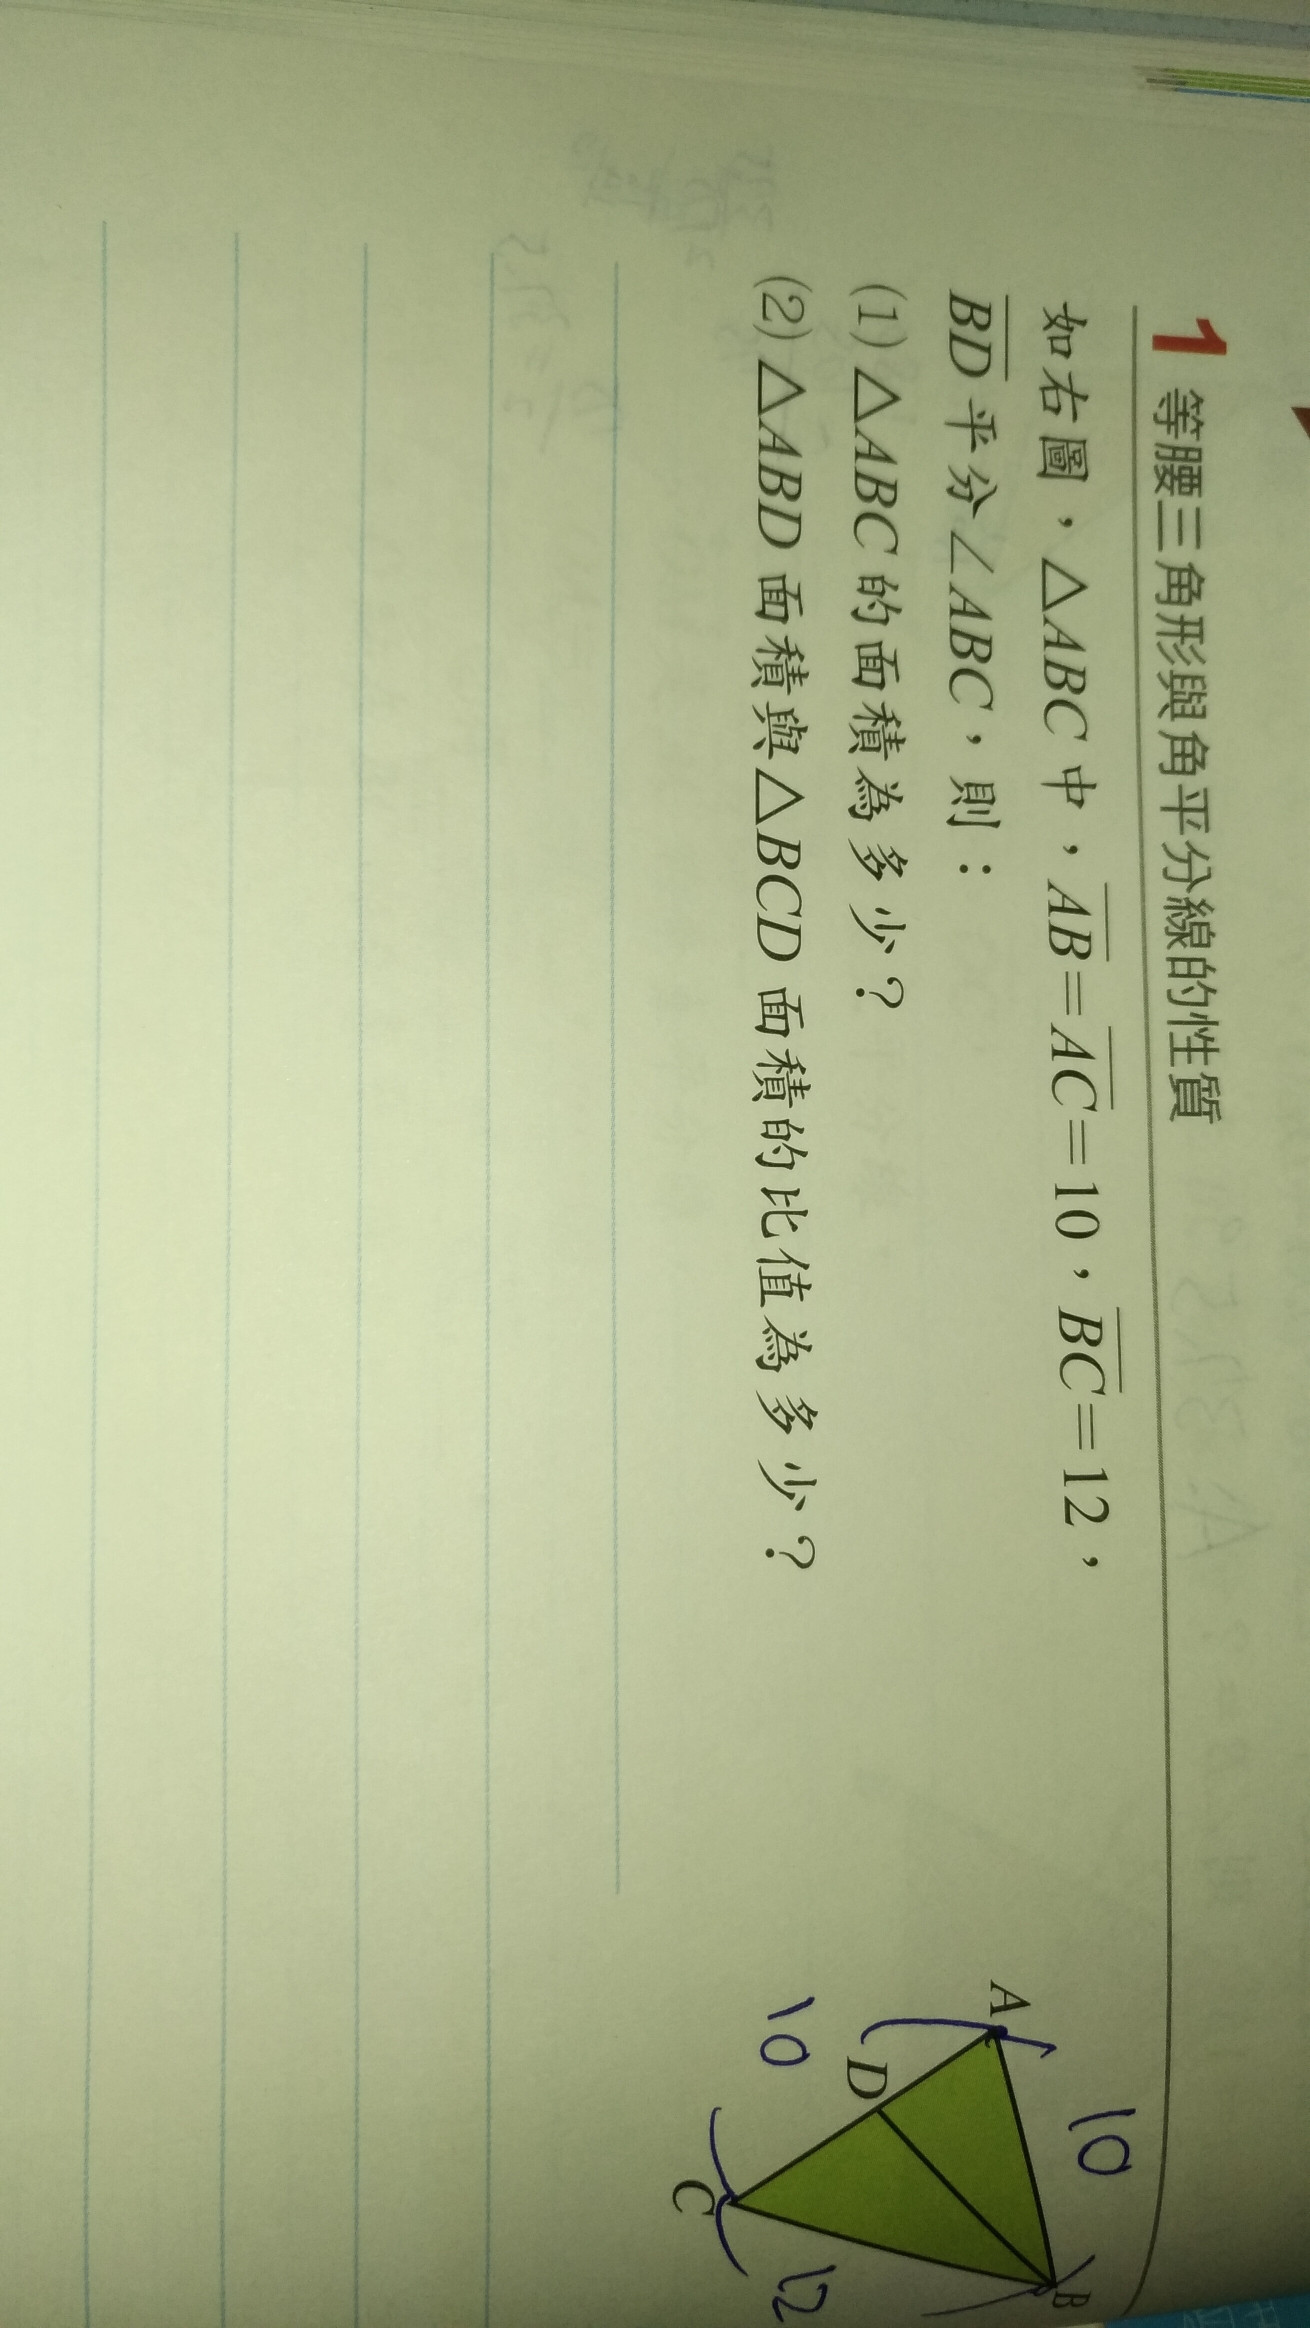 1 等腰三角形與角平分線的性質
如右圖，△ABC中，AB=AC=10，BC=12，
BD平分∠ABC，則：
(1)△ABC的面積為多少？
(2)△ABD面積與△BCD面積的比值為多少？
A
10
B
D
10
C
12